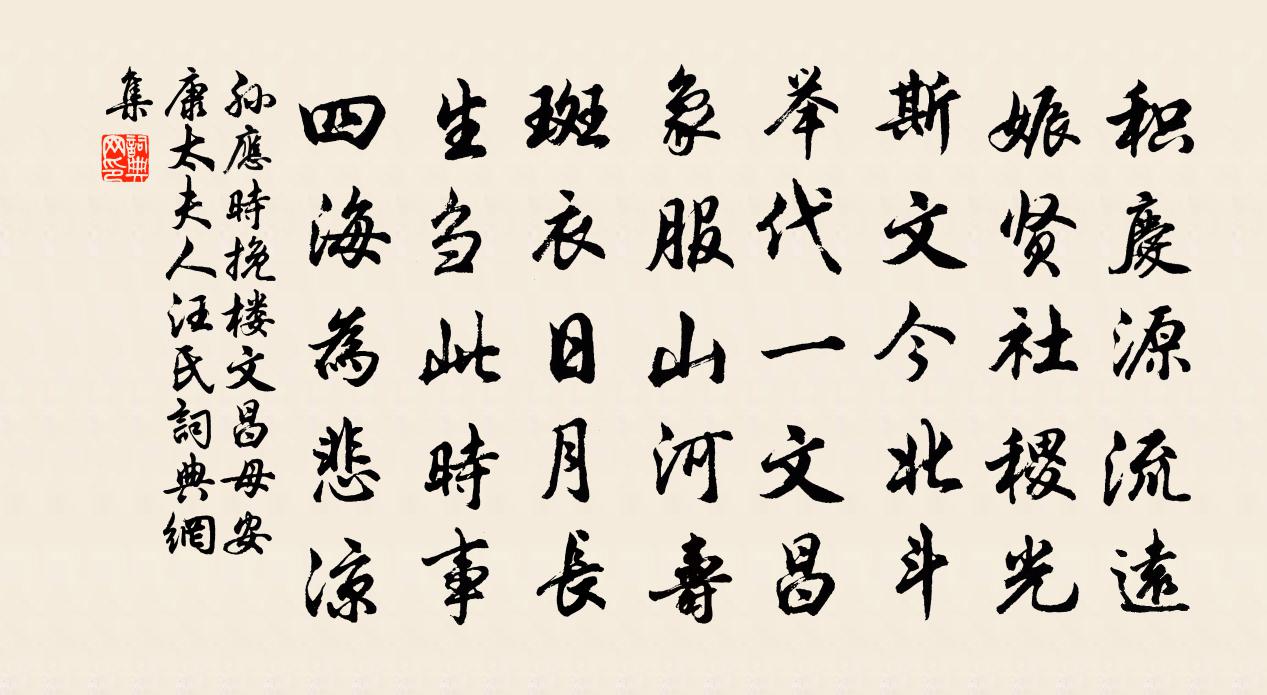 积慶源流遠
娠贤社稷光
斯文今北斗
举代一文昌
象服山河壽
斑衣日月長
生当此時事
四海為悲凉
孙應時挽楼文昌母安
康太夫人汪氏詞典網
集
詞典网印